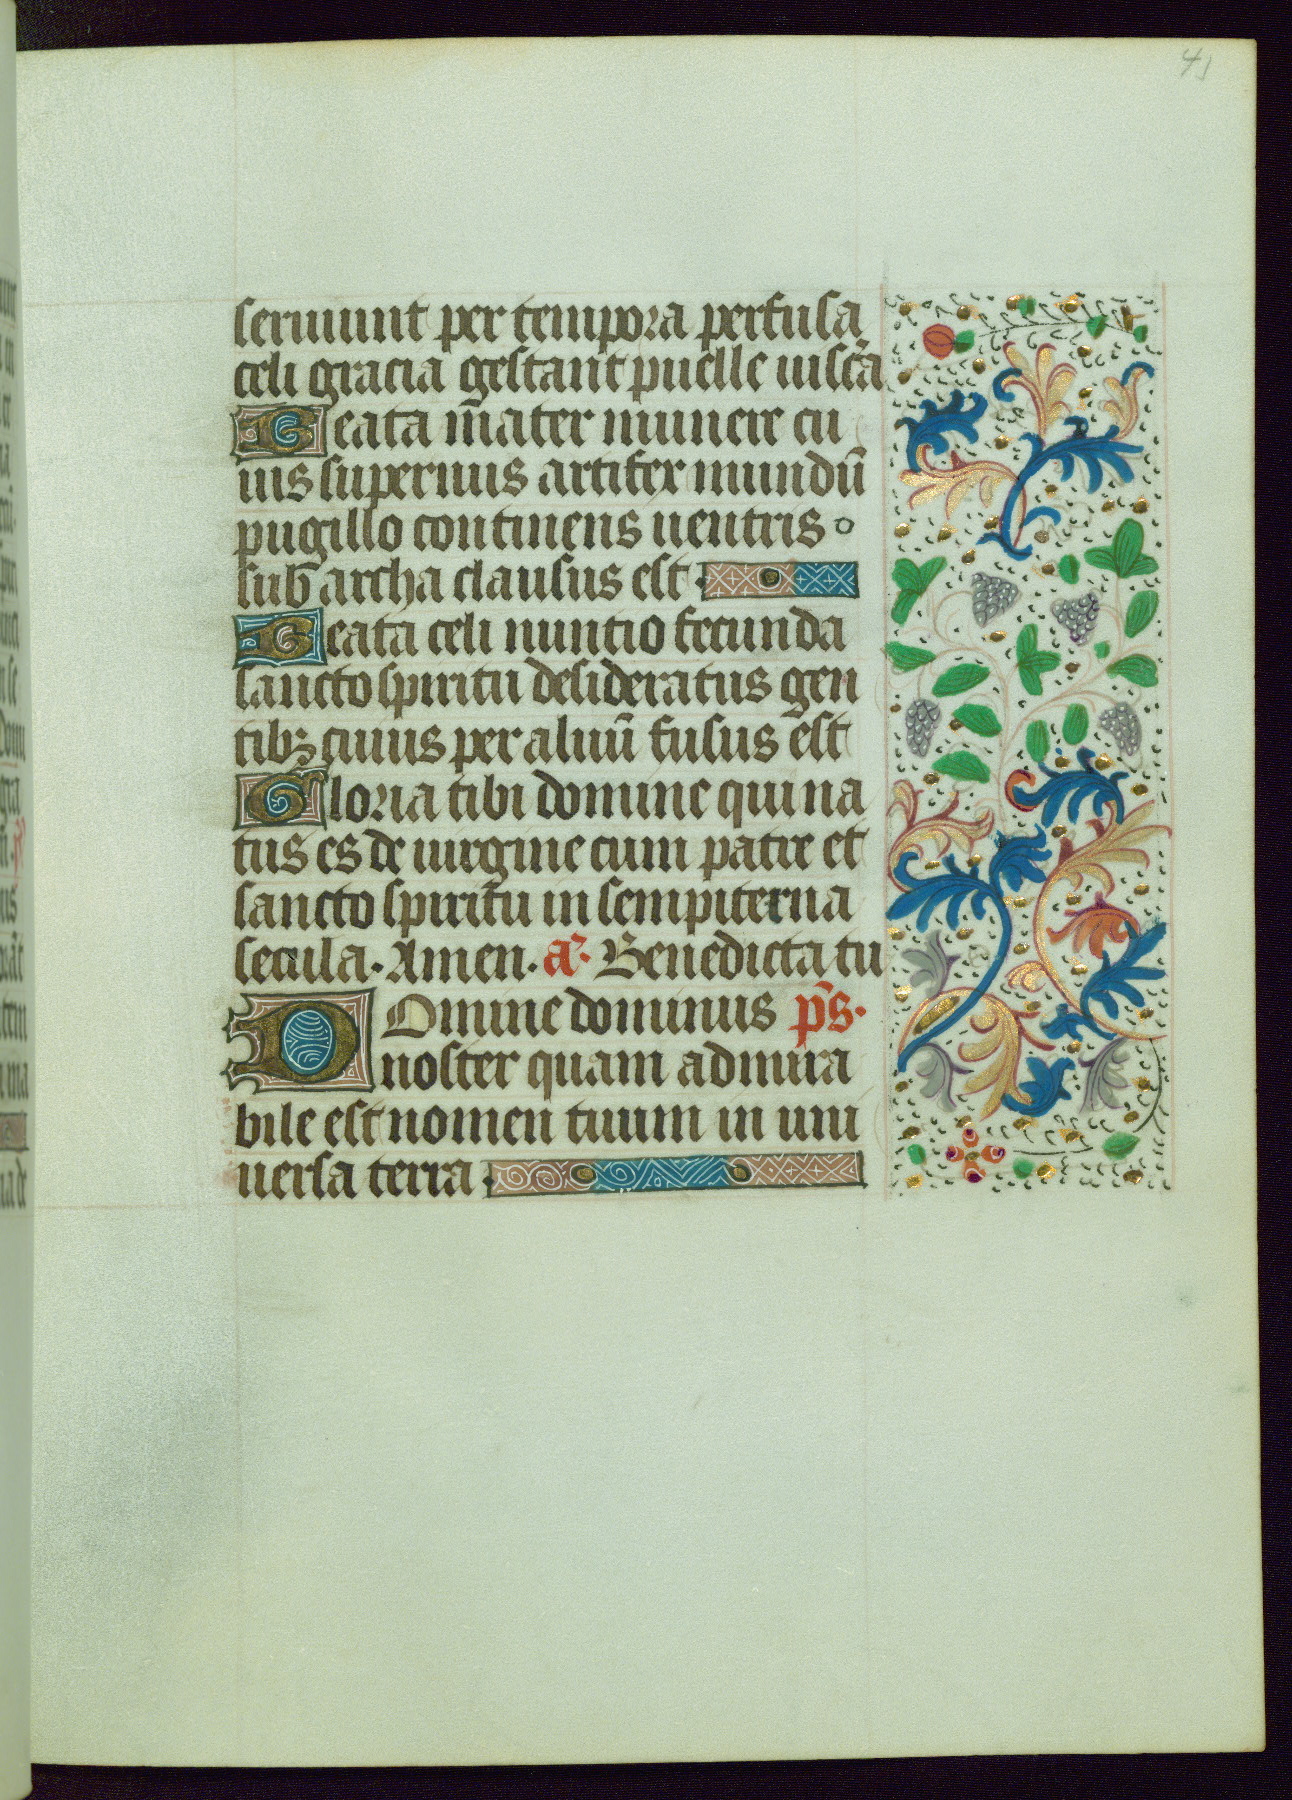 41
seruiunt per tempora perfusa
celi gracia gestant puelle uiscēa
Beata māter munere cu
ius supernus artifex mundū
pugillo continens uentris o
sub archa clausus est
Beata celi nuntio fecunda
sancto spiritu desideratus gen
tibꝫ cuius per aluū fusus est
Gloria tibi domine qui na
tus es de uirgine cum patre et
sancto spiritu in sempiterna
secula. Amen. a᷒. Benedicta tu
Domine dominus p̄s.
noster quam admira
bile est nomen tuum in uni
uersa terra